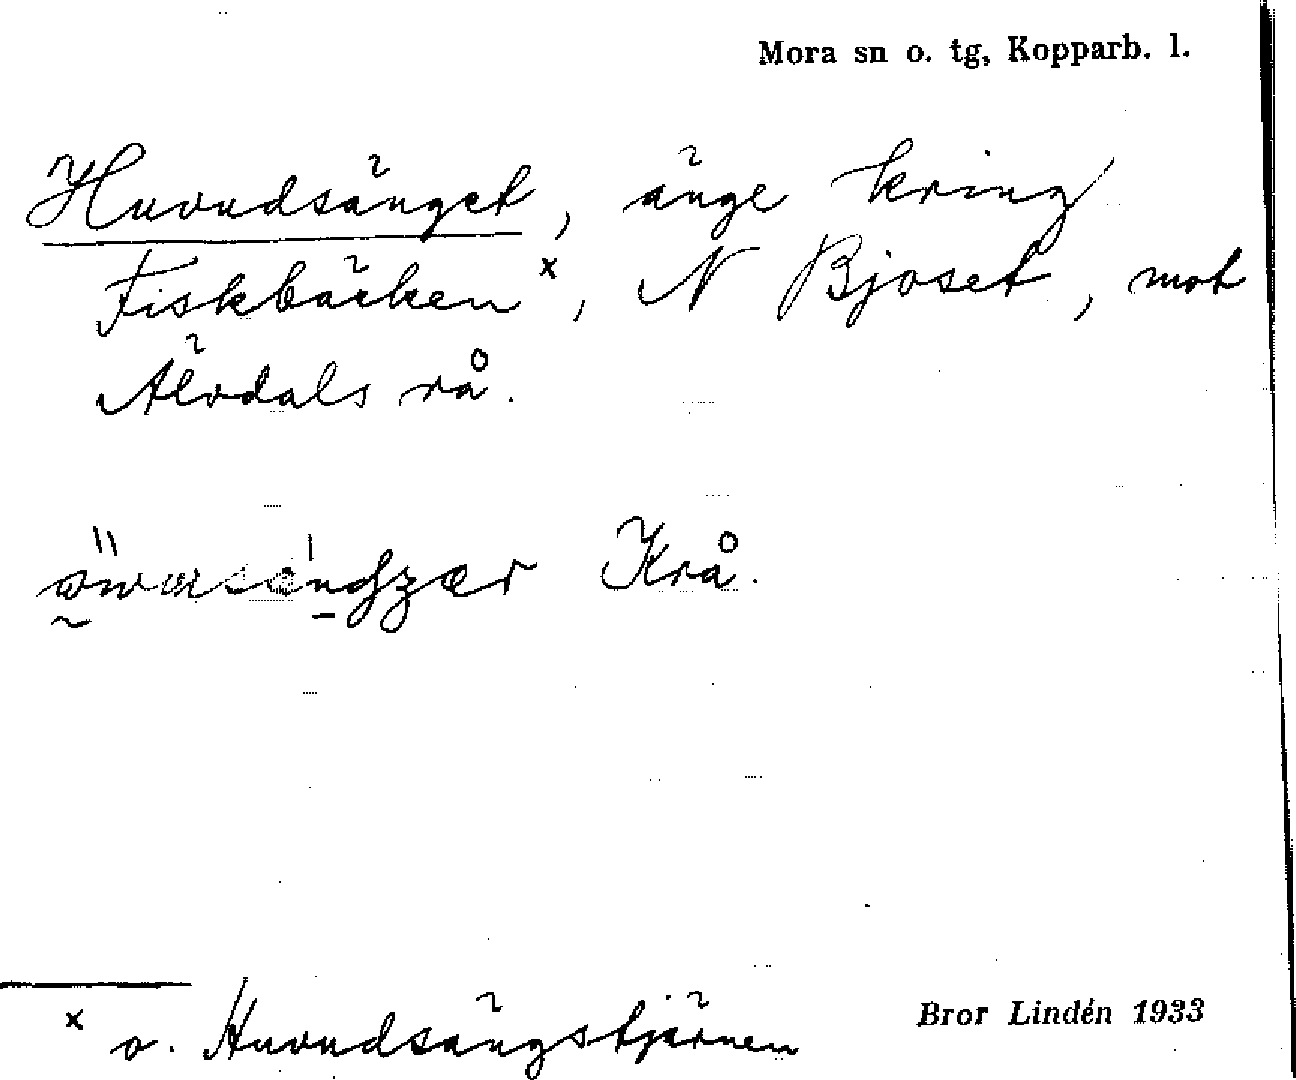 Mora sn o. tg, Kopparb. l.
Huvudsänget, änge kring
Fiskbäcken x, N Bjoset, mot
Älvdals rå.
Krå.
x o. Huvudsängstjärnen
Bror Lindén 1933